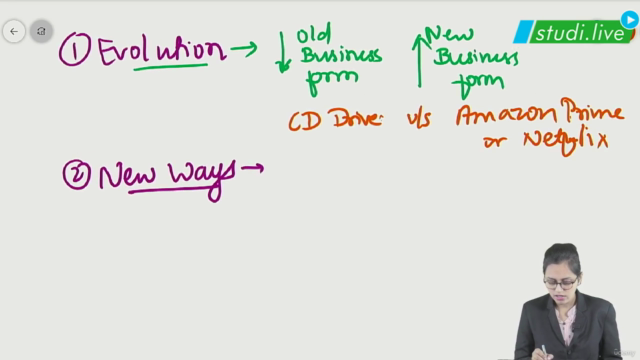 studi.live
① Evolution → ↓ Old Business form ↑ New Business form
CD Drive v/s Amazon Prime or Netflix
② New Ways →